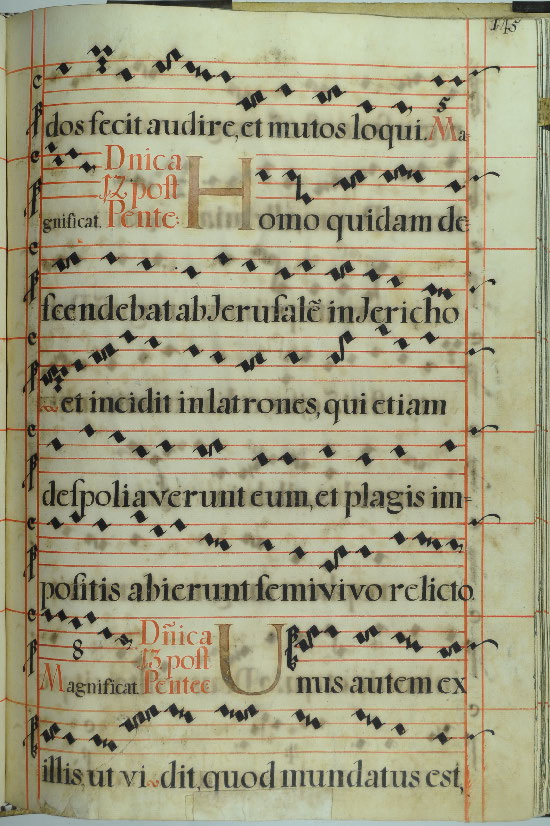 145
dos fecit audire, et mutos loqui. Ma-
5
Dnica
12 post
gnificat. Pente: Homo quidam de-
scendebat ab Jerusalē in Jericho
et incidit in latrones, qui etiam
despoliaverunt eum, et plagis im-
positis abierunt semivivo relicto.
8
Dñica
13 post
Magnificat Pentec Unus autem ex
illis, ut vidit, quod mundatus est,